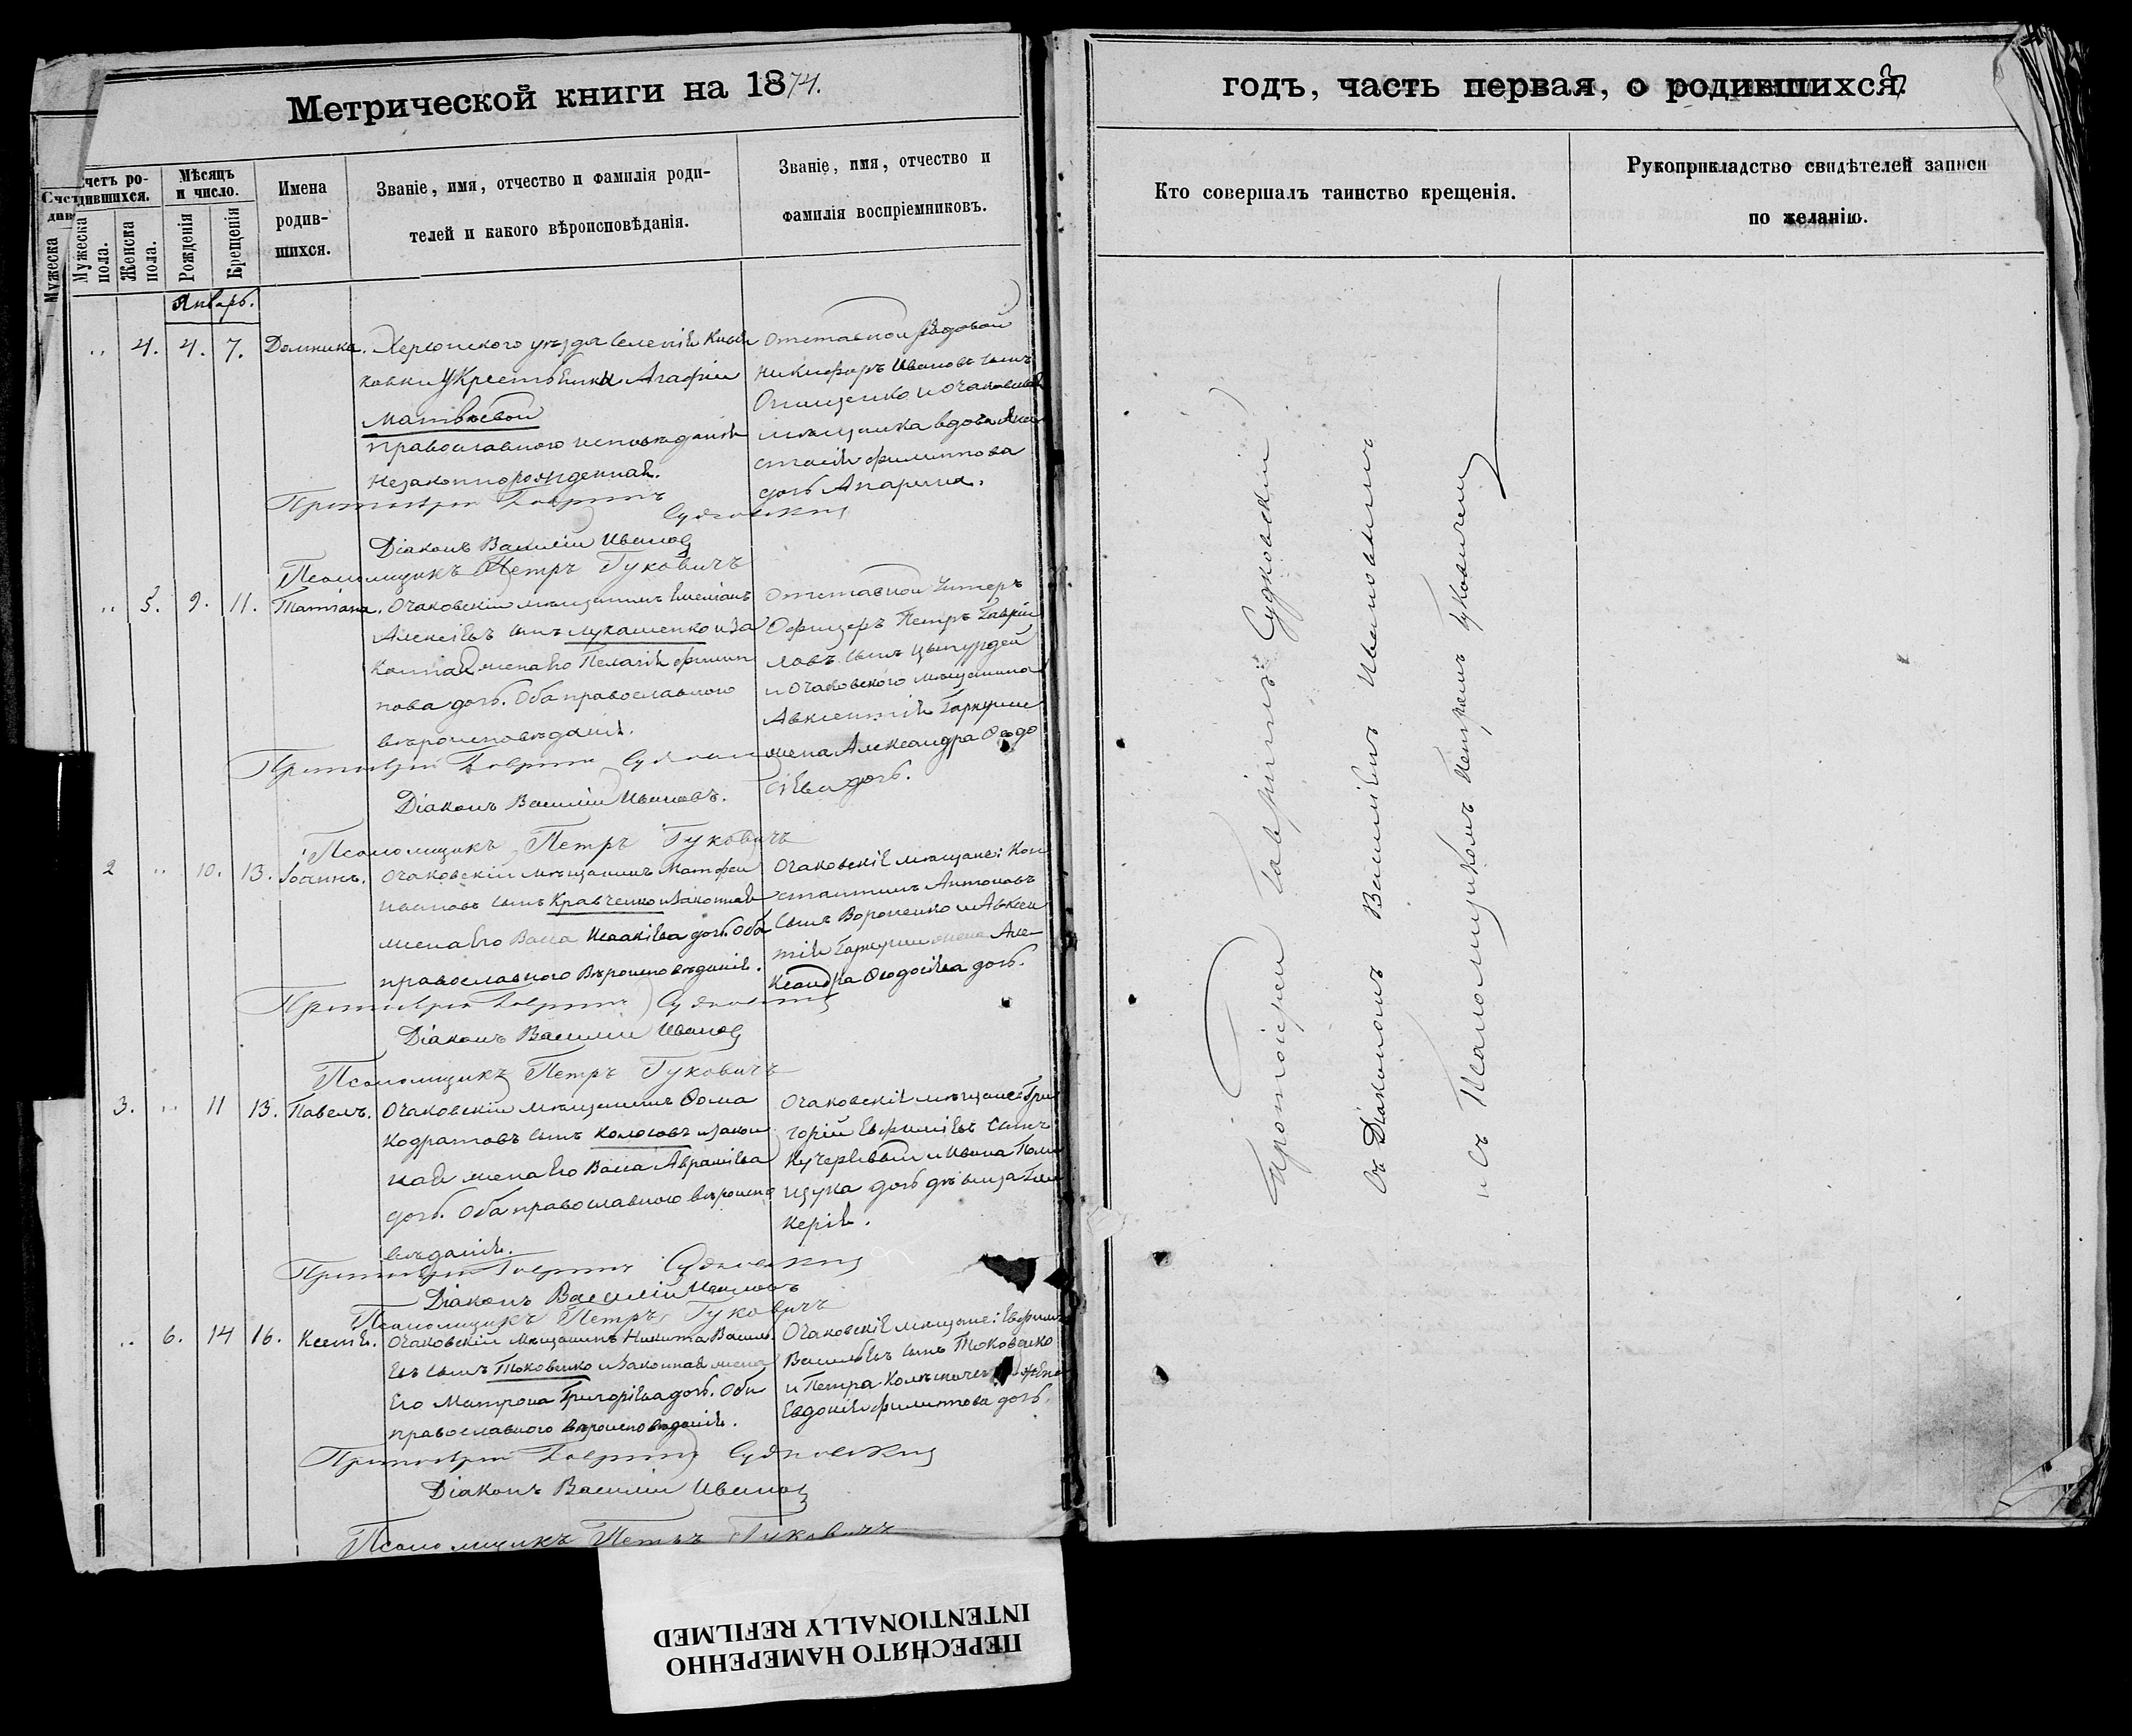 Метрической книги на 1874.
Счетъ родившихся.
Мужеска пола.
Женска пола.
Мѣсяцъ и число.
Рожденія
Крещенія
Имена родившихся.
Званіе, имя, отчество и фамилія родителей и какого вѣроисповѣданія.
Званіе, имя, отчество и фамилія воспріемниковъ.
Январь.
" 4. 4. 7. Домника.
Херсонскаго уѣзда селенія
Крестьянки Агафіи
Матвѣевой
православного исповѣданія
Незаконнорожденная.
Отставной Рядовой
Никифоръ Ивановъ сынъ
Онищенко и Очаковская
мѣщанка вдова Ана
стасія Филиппова
дочь
Протоіерей Гавріилъ Судковскій
Діаконъ Василій Ивановъ
Псаломщикъ Петръ Гуковичъ
" 5. 9. 11. Татіана.
Очаковскій мѣщанинъ Емеліанъ
Алексіевъ сынъ Лукашенко и За
конная жена его Пелагія Филип
пова дочь. Оба православного
вѣроисповѣданія.
Отставной Унтеръ
Офицеръ Петръ Гаврии
ловъ сынъ
и Очаковского мѣщанина
Авксентія Гаркуши
жена Александра Ѳеодо
сіева дочь.
Протоіерей Гавріилъ Судковскій
Діаконъ Василій Ивановъ.
Псаломщикъ Петръ Гуковичъ
2 " 10. 13. Іоаннъ.
Очаковскій мѣщанинъ Матфей
Ивановъ сынъ Кравченко и Законная
жена его Васса Исаакіева дочь. Оба
православного Вѣроисповѣданія.
Очаковскіе мѣщане: Кон
стантинъ Антоновъ
сынъ Вороненко и Авксен
тія Гаркуши жена Але-
ксандра Ѳеодосіева дочь.
Протоіерей Гавріилъ Судковскій
Діаконъ Василій Ивановъ
Псаломщикъ Петръ Гуковичъ
3. " 11 13. Павелъ.
Очаковскій мѣщанинъ Ѳома
Кодратовъ сынъ Колосовъ и закон
ная жена его Васса Авраміева
дочь. Оба православного вѣроиспо
вѣданія.
Очаковскіе мѣщане: Гри
горій Евфиміевъ сынъ
Кучерявый и Ивана Поли
щука дочь дѣвица Гли
керія.
Протоіерей Гавріилъ Судковскій
Діаконъ Василій Ивановъ
Псаломщикъ Петръ Гуковичъ
" 6. 14 16. Ксенія.
Очаковскій Мѣщанинъ Никита Василь
евъ сынъ Токовенко и Законная жена
Его Матрона Григоріева дочь. Оба
православного вѣроисповѣданія.
Очаковскіе мѣщане: Евфимъ
Васильевъ сынъ Токовенко
и Петра жена
Евдокія Филиппова дочь.
Протоіерей Гавріилъ Судковскій
Діаконъ Василій Ивановъ
Псаломщикъ Петръ Гуковичъ
годъ, часть первая, о родившихся.
Кто совершалъ таинство крещенія.
Рукоприкладство свидѣтелей записи по желанію.
Протоіерей Гавріилъ Судковскій
съ Діакономъ Василіемъ Ивановымъ
и съ Псаломщикомъ Петромъ Гуковичемъ
ПЕРЕСНЯТО НАМЕРЕННО
INTENTIONALLY REFILMED